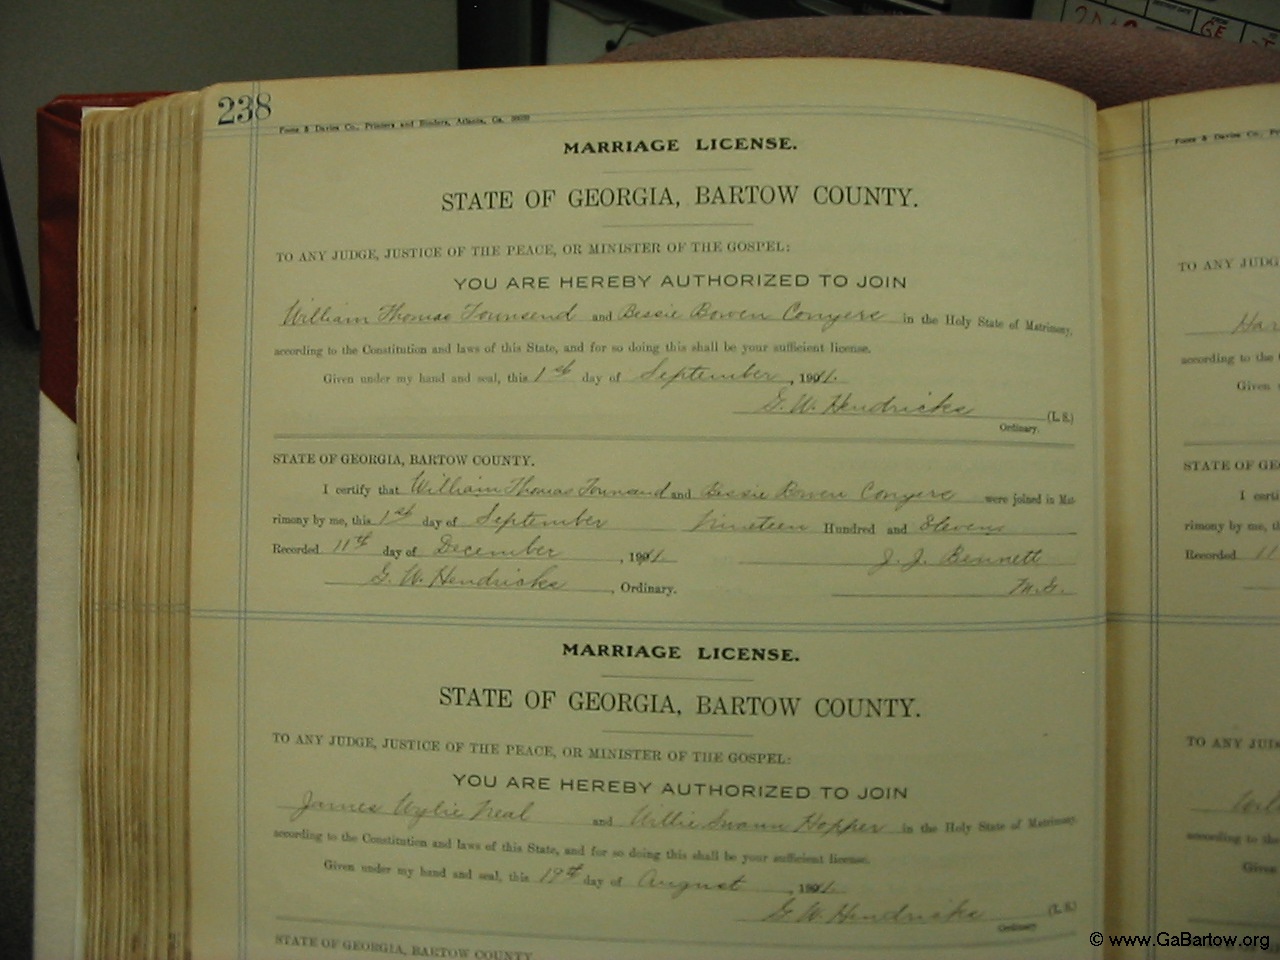 238
Foote & Davies Co., Printers and Binders, Atlanta, Ga.
MARRIAGE LICENSE.
STATE OF GEORGIA, BARTOW COUNTY.
TO ANY JUDGE, JUSTICE OF THE PEACE, OR MINISTER OF THE GOSPEL:
YOU ARE HEREBY AUTHORIZED TO JOIN
William Thomas Townsend and Bessie Bowen Conyers in the Holy State of Matrimony,
according to the Constitution and laws of this State, and for so doing this shall be your sufficient license.
Given under my hand and seal, this 1st day of September, 1911.
G. W. Hendricks (L. S.)
Ordinary.
STATE OF GEORGIA, BARTOW COUNTY.
I certify that William Thomas Townsend and Bessie Bowen Conyers were joined in Mat-
rimony by me, this 1st day of September Nineteen Hundred and Elevens
Recorded 11th day of December, 1911. J. J. Bennett
G. W. Hendricks, Ordinary. M. G.
MARRIAGE LICENSE.
STATE OF GEORGIA, BARTOW COUNTY.
TO ANY JUDGE, JUSTICE OF THE PEACE, OR MINISTER OF THE GOSPEL:
YOU ARE HEREBY AUTHORIZED TO JOIN
James Wylie Neal and Willie Swann Hopper in the Holy State of Matrimony,
according to the Constitution and laws of this State, and for so doing this shall be your sufficient license.
Given under my hand and seal, this 19th day of August, 1911.
G. W. Hendricks (L. S.)
Ordinary
STATE OF GEORGIA, BARTOW COUNTY
Foote & Davies Co., Pr
TO ANY JUDG
Har
according to the
Given
STATE OF GE
I certi
rimony by me, th
Recorded 11
TO ANY JUD
according to the
Given
© www.GaBartow.org